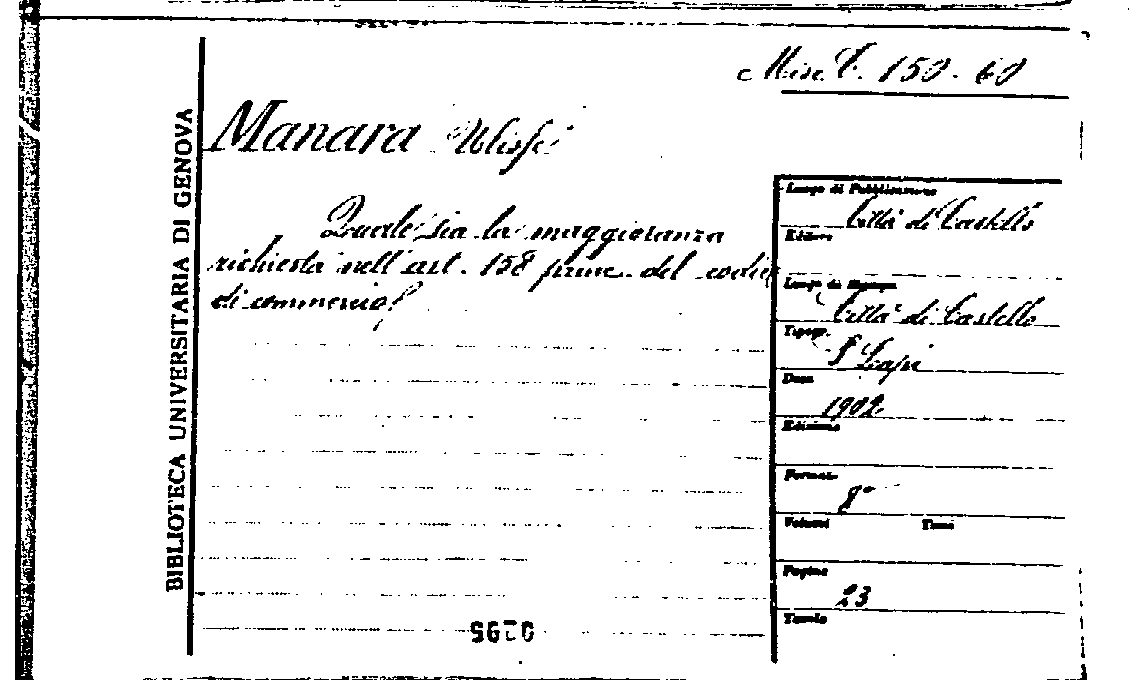 Misc. C. 150. 60
BIBLIOTECA UNIVERSITARIA DI GENOVA
Manara Ulisse
Quale sia la maggioranza
richiesta nell'art. 158 princ. del codice
di commercio?
Luogo di Pubblicazione
Città di Castello
Editore
Luogo di Stampa
Città di Castello
Tipogr.
S Lapi
Data
1902
Edizione
Formato
8°
Volumi Tomi
Pagine
23
Tavole